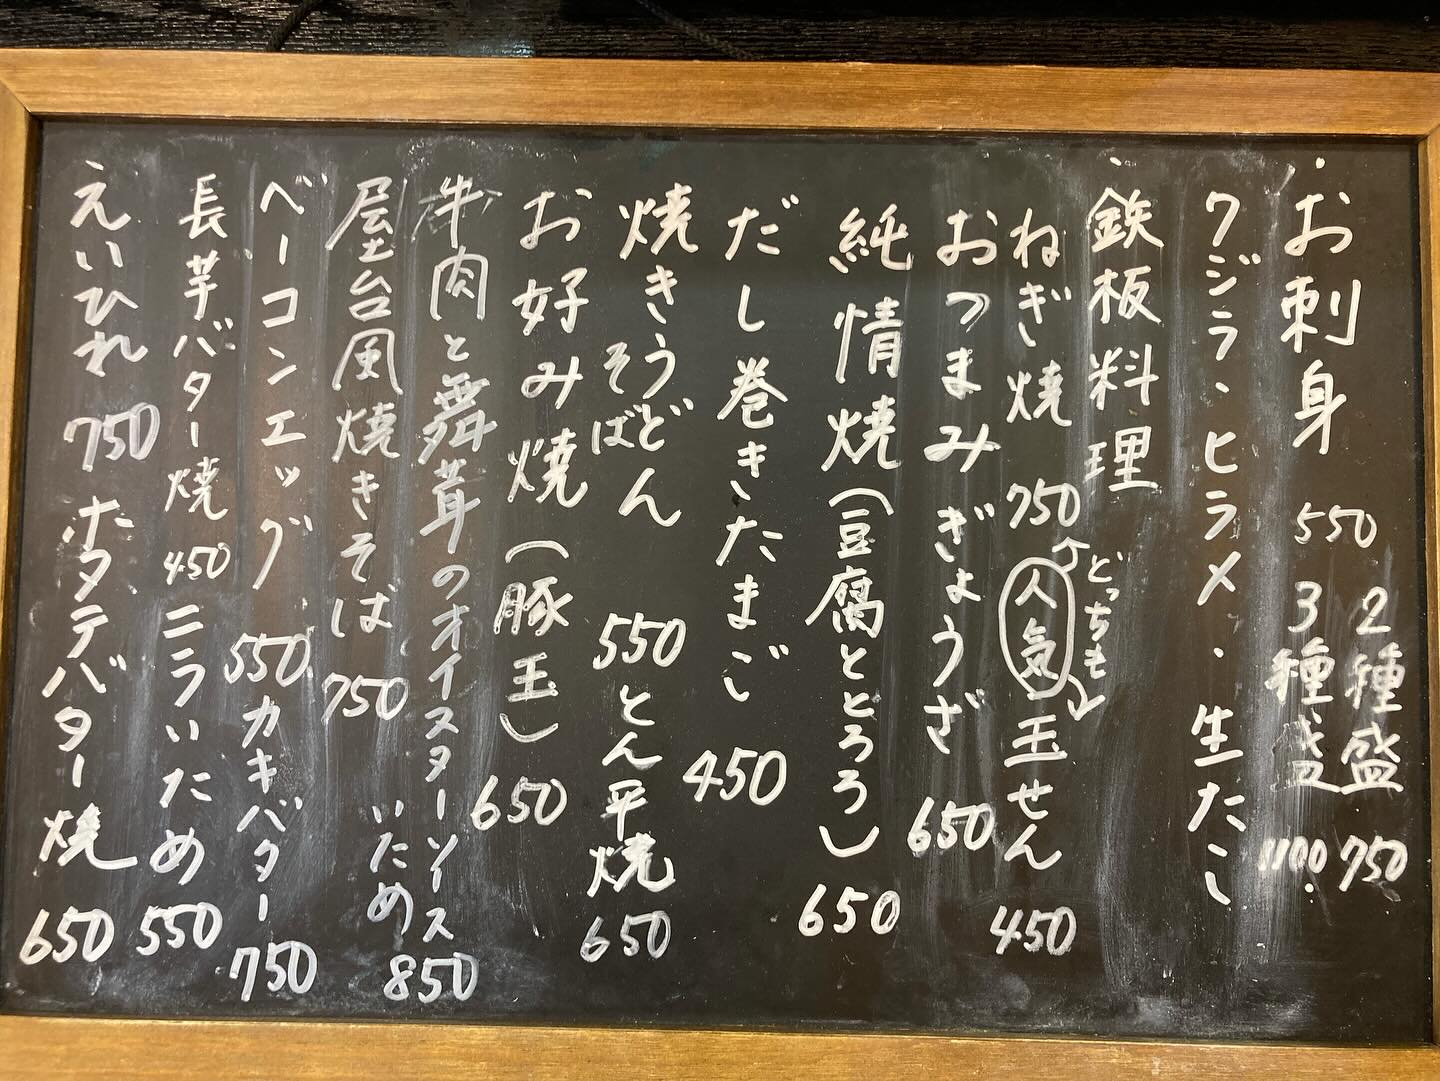 ・お刺身 550 2種盛 750
3種盛 1100.
クジラ・ヒラメ・生たこ
・鉄板料理
ねぎ焼 750 人気 玉せん 450
どっちも
おつまみぎょうざ 650
純情焼(豆腐ととろろ) 650
だし巻きたまご 450
焼きうどん
そば 550 とん平焼 650
お好み焼(豚玉) 650
牛肉と舞茸のオイスターソース
いため 850
屋台風焼きそば 750
ベーコンエッグ 550 カキバター 750
長芋バター焼 450 ニラいため 550
えいひれ 750 ホタテバター焼 650